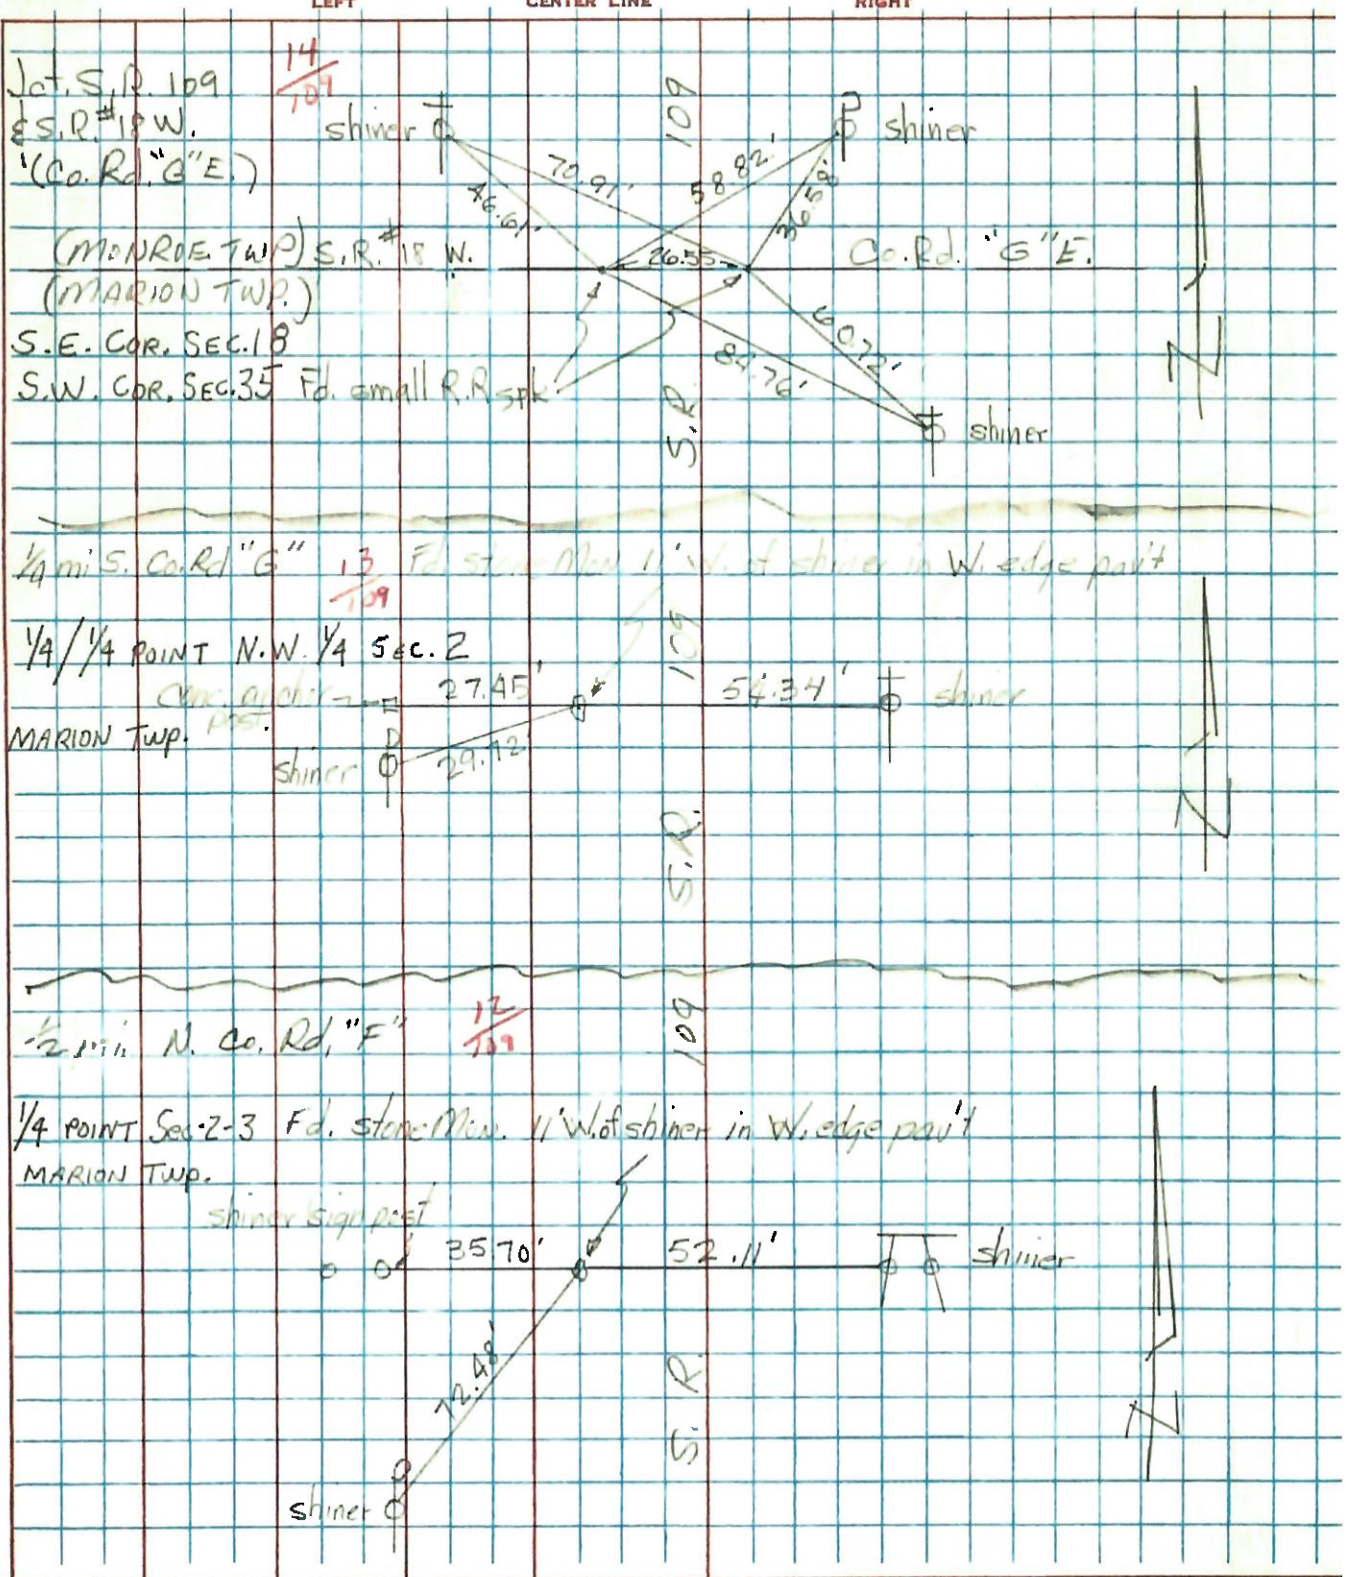 LEFT CENTER LINE RIGHT
Jct. S.R. 109
14/109
& S.R. #18 W.
(Co. Rd. "G" E.)
shiner
shiner
109
70.91'
58.82'
46.61'
36.58'
(MONROE TWP) S.R. #18 W.
26.55
Co. Rd. "G" E.
(MARION TWP.)
S.E. COR. SEC. 18
S.W. COR. SEC. 35 Fd. small R.R spk
60.72'
84.76'
S.R.
shiner
N
1/4 mi S. Co. Rd "G"
13/109
Fd. stone Mon 11' W. of shiner in W. edge pav't
109
1/4/1/4 POINT N.W. 1/4 SEC. 2
conc. anchor post
27.45'
54.34'
shiner
MARION TWP.
29.72'
shiner
S.R.
N
1/2 mi N. Co. Rd. "F"
12/109
109
1/4 POINT Sec-2-3 Fd. stone Mon. 11' W. of shiner in W. edge pav't
MARION TWP.
shiner sign post
35.70'
52.11'
shiner
72.48'
S. R.
shiner
N